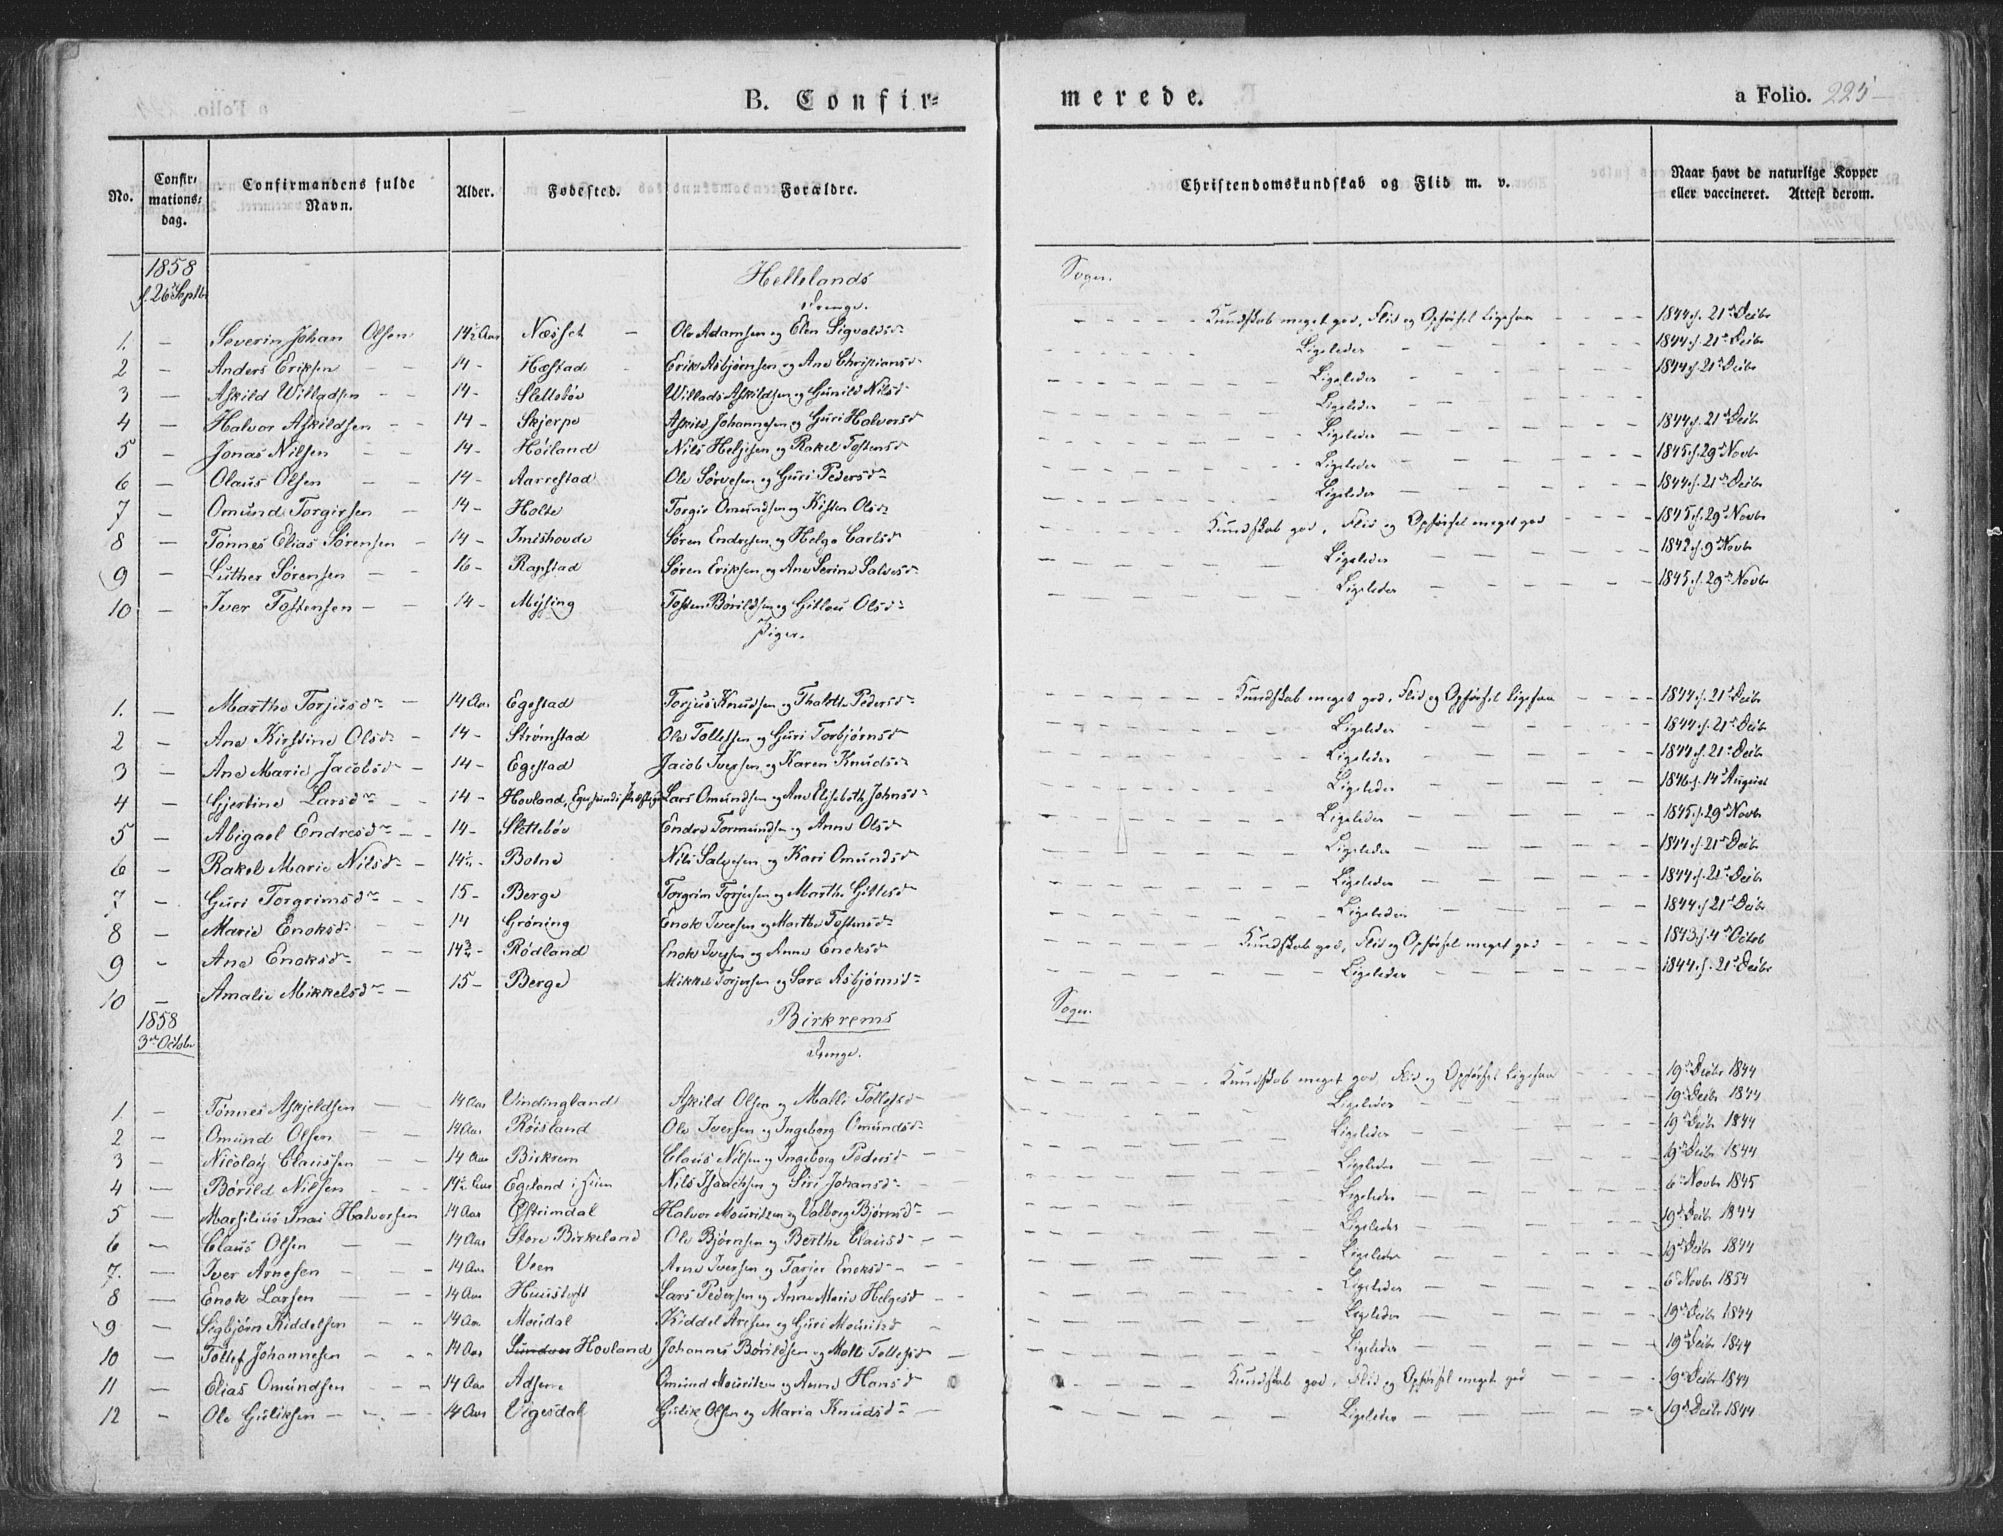 B. Confir=
merede.
a Folio. 225
No.
Confir:
mations:
dag.
Confirmandens fulde
Navn.
Alder.
Fodested.
Forældre.
Christendomskundskab og Flid m. v.
Naar havt de naturlige Kopper
eller vaccineret. Attest derom.
1858 Hellelands Sogn.
d. 26 Septbr Drenge.
1. — Severin Johan Olsen 14½ Aar Næsset Ole Adamsen og Elen Sigvaldsd. Kundskab meget god, Flid og Opførsel ligesaa 1844 d. 21de Decbr
2 — Anders Eriksen 14 Hæstad Erik Asbjørnsen og Ane Christiansd Ligeledes 1844 d. 21de Decbr
3 — Askild Willadsen 14 Slettebøe Willads Askildsen og Gunild Nilsd Ligeledes 1844 d. 21 Decbr
4 — Halvor Askildsen 14 Skjerpe Askild Johannesen og Guri Halvorsd Ligeledes 1844 d. 21de Decbr
5 — Jonas Nilsen 14 Høiland Nils Helgesen og Rakel Tostensd Ligeledes 1845 d. 29de Novbr
6 — Olaus Olsen 14 Aarrestad Ole Sørvesen og Guri Pedersd Ligeledes 1844 d. 21de Decbr
7 — Omund Torgirsen 14 Holte Torgir Omundsen og Kisten Olsd. Ligeledes 1845 d. 29de Novbr
8 — Tønnes Elias Sørensen 14 Imishovde Søren Endresen og Helga Carlsd Kundskab god, Flid og Opførsel meget god 1842 d. 9de Novbr
9 — Luther Sørensen 16 Rapstad Søren Eriksen og Ane Serine Salvesd Ligeledes 1845 d. 29de Novbr
10 — Iver Tostensen 14 Mysing Tosten Børildsen og Gitlou Olsd Ligeledes
Piger.
1. — Marthe Torjusd. 14 Aar Egestad Torjus Knudsen og Thalette Pedersd. Kundskab meget god, Flid og Opførsel ligesaa 1844 d. 21de Decbr
2 — Ane Kirstine Olsd 14 Strømstad Ole Tollefsen og Guri Torbjørnsd Ligeledes 1844 d. 21de Decbr
3 — Ane Marie Jacobsd 14 Egestad Jacob Iversen og Karen Knudsd Ligeledes 1844 d. 21de Decbr
4 — Gjertine Larsd. 14 Hovland, Egersunds Præstegd Lars Omundsen og Ane Elisabeth Johnsd Ligeledes 1846 d. 14de August
5 — Abigael Endresd 14 Slettebøe Endre Tormundsen og Anne Olsd Ligeledes 1845 d. 29de Novbr
6 — Rakel Marie Nilsd 14½ Botne Nils Salvesen og Kari Omundsd Ligeledes 1844 d. 21 Decbr
7 — Guri Torgrimsd. 15 Berge Torgrim Torjersen og Marthe Gittesd Ligeledes 1844 d. 21 Decbr
8 — Marie Enoksd 14 Grøning Enok Iversen og Marthe Tostensd Ligeledes 1844 d. 21de Decbr
9 — Ane Enoksd 14¾ Rødland Enok Iversen og Anne Enoksd Kundskab god, Flid og Opførsel meget god 1843 d. 4de Octob
10 — Amalie Mikkelsd. 15 Berge Mikkel Torjersen og Sara Asbjørnsd Ligeledes 1844 d. 21de Decbr
1858 Birkrems Sogn.
3de Octobr Drenge.
1. — Tønnes Askjeldsen 14 Aar Vindingland Askild Olsen og Malli Tollefsd Kundskab meget god, Flid og Opførsel ligesaa 19de Decbr 1844
2 — Omund Olsen 14 Aar Røisland Ole Iversen og Ingeborg Omundsd Ligeledes 19de Decbr 1844
3 — Nicolay Claussen 14 Aar Birkrem Claus Nilsen og Ingeborg Pedersd Ligeledes 19de Decbr 1844
4 — Børild Nilsen 14½ Aar Egeland i Hein Nils Isaachsen og Siri Johansd Ligeledes 19de Decbr 1844
5 — Marsilius Inai Halvorsen 14 Aar Østrimdal Halvor Mouritzen og Valborg Bjørnsd Ligeledes 6te Novbr 1845
6 — Claus Olsen 14 Aar Store Birkeland Ole Bjørnsen og Berthe Clausd Ligeledes 19de Decbr 1844
7. — Iver Arnesen 14 Aar Veen Arne Iversen og Tarjer Enoksd Ligeledes 19de Decbr 1844
8 — Enok Larsen 14 Aar Huustoft Lars Pedersen og Anne Marie Helgesd Ligeledes 6te Novbr 1854
9 — Sigbjørn Kiddelsen 14 Aar Moudal Kiddel Aresen og Guri Mouritsd Ligeledes 19de Decbr 1844
10 — Tollef Johannesen 14 Aar Hovland Johannes Børildsen og Malli Tollefsd Ligeledes 19de Decbr 1844
11 — Elias Omundsen 14 Aar Adsem Omund Mouritzen og Anne Hansd Kundskab god, Flid og Opførsel meget god 19de Decbr 1844
12 — Ole Guliksen 14 Aar Vigesdal Gulik Olsen og Maria Knudsd Ligeledes 19de Decbr 1844